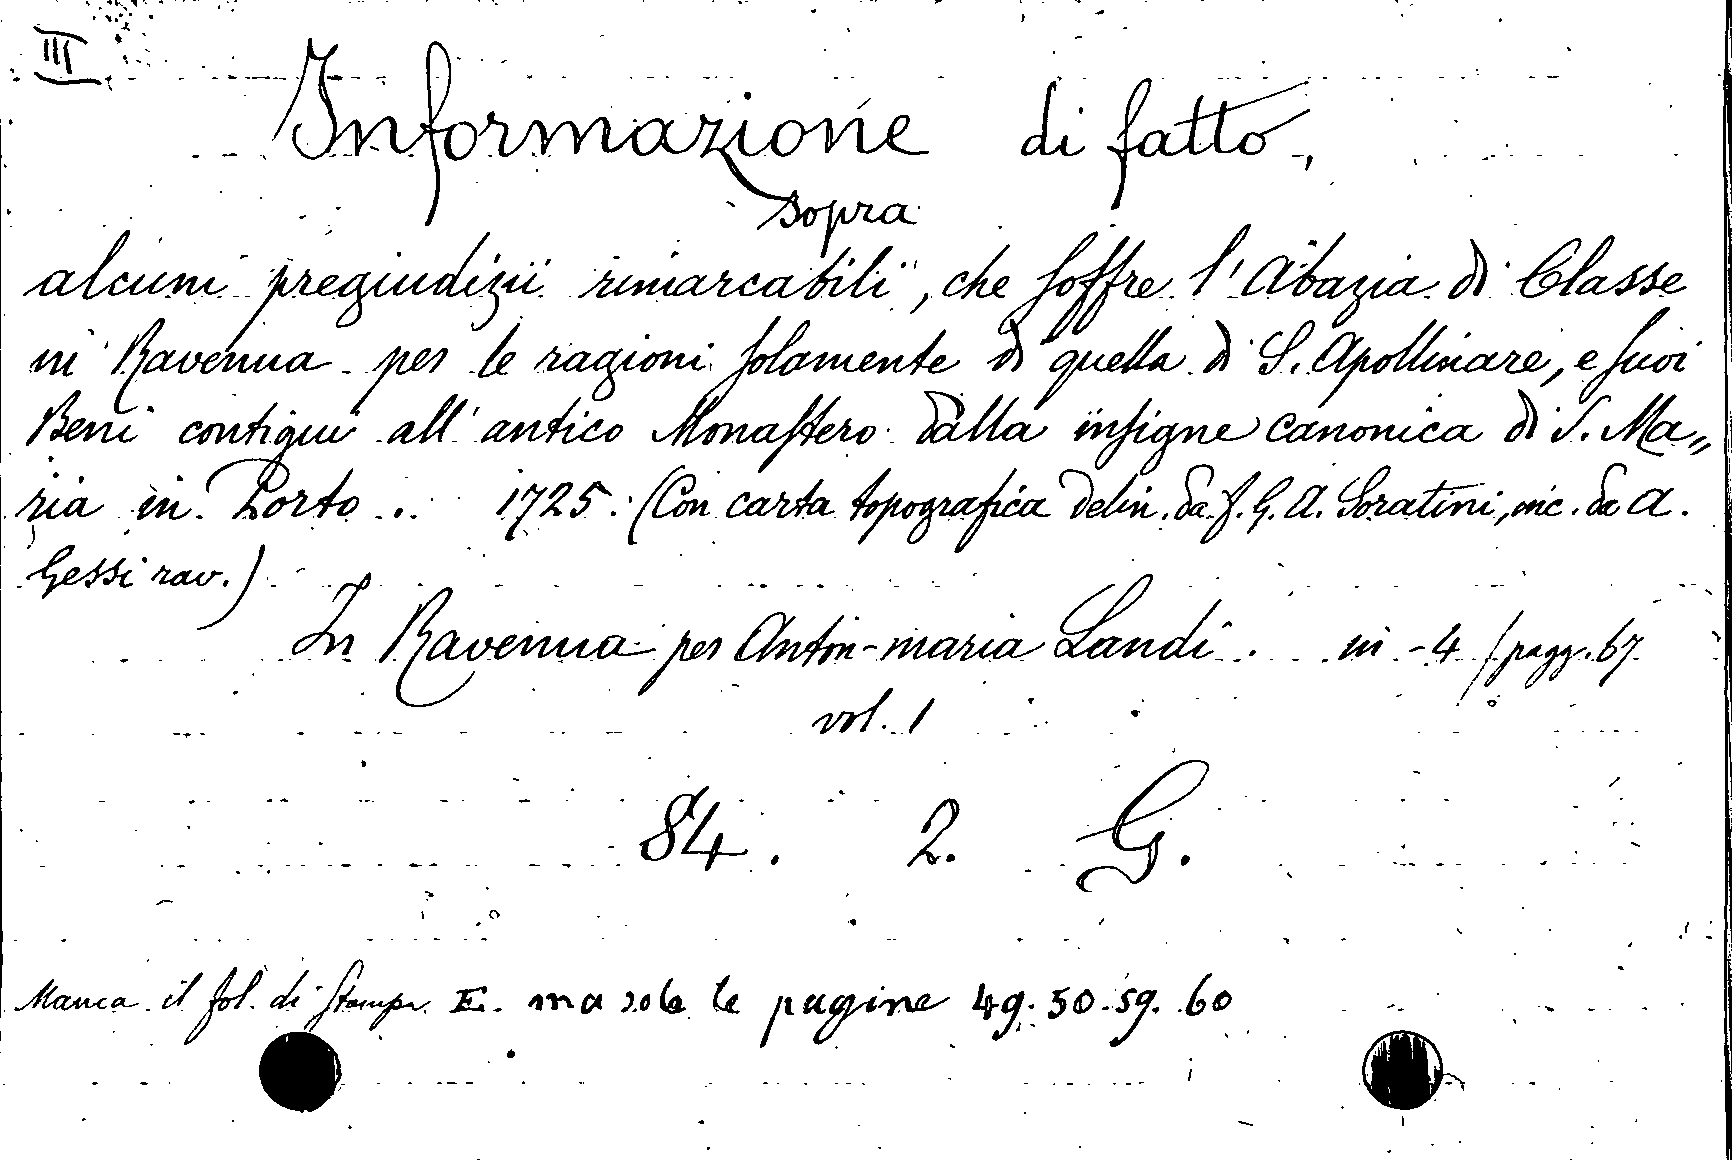 III
Informazione di fatto,
sopra
alcuni pregiudizii rimarcabili, che soffre l'Abazia di Classe
in Ravenna per le ragioni solamente di quella di S. Apollinare, e suoi
Beni contigui all'antico Monastero dalla insigne canonica di S. Ma„
ria in Porto .. 1725. (Con carta topografica delin. da f. G. A. Soratini, inc. da A.
Gessi rav.)
In Ravenna per Anton-maria Landi. in-4 (pagg. 67
vol. 1
84. 2. G.
Manca il fol. di stampa E. ma solo le pagine 49. 50. 59. 60